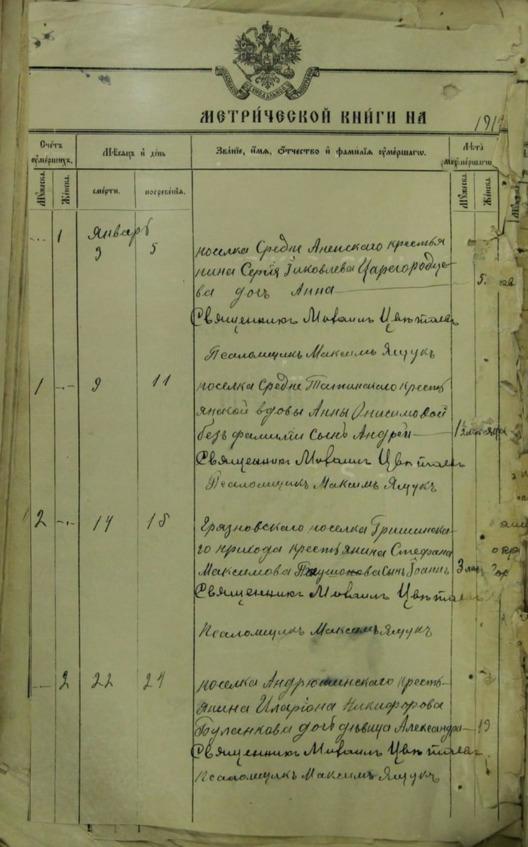 МЕТРИ́ЧЕСКОЙ КНИ́ГИ НА
191
Счетъ умершихъ.
Мѣсяцъ и день
Званіе, имя, отчество и фамилія умершаго.
Лѣта умершаго.
Мужеска.
Женска.
смерти.
погребенія.
Мужеска.
Женска.
Январь
1 3 5
поселка Средне
крестья
нина Сергія Іаковлева Царегородце
ва дочь Анна
5.
Священникъ Михаилъ Цвѣтаевъ
Псаломщикъ Максимъ Ящукъ
1 9 11
поселка Средне
крестъ
янской вдовы Анны Онисимовой
безъ фамиліи сынъ Андрей
Священникъ Михаилъ Цвѣтаевъ
Псаломщикъ Максимъ Ящукъ
2 14 15
Грязновскаго поселка Гришинска
го прихода крестьянина Стефана
Максимова
сынъ Іоаннъ
3
Священникъ Михаилъ Цвѣтаевъ
Псаломщикъ Максимъ Ящукъ
2 22 24
поселка Андрюшинскаго кресть
янина Иларіона Никифорова
Буланкова дочь дѣвица Александра
19
Священникъ Михаилъ Цвѣтаевъ
Псаломщикъ Максимъ Ящукъ